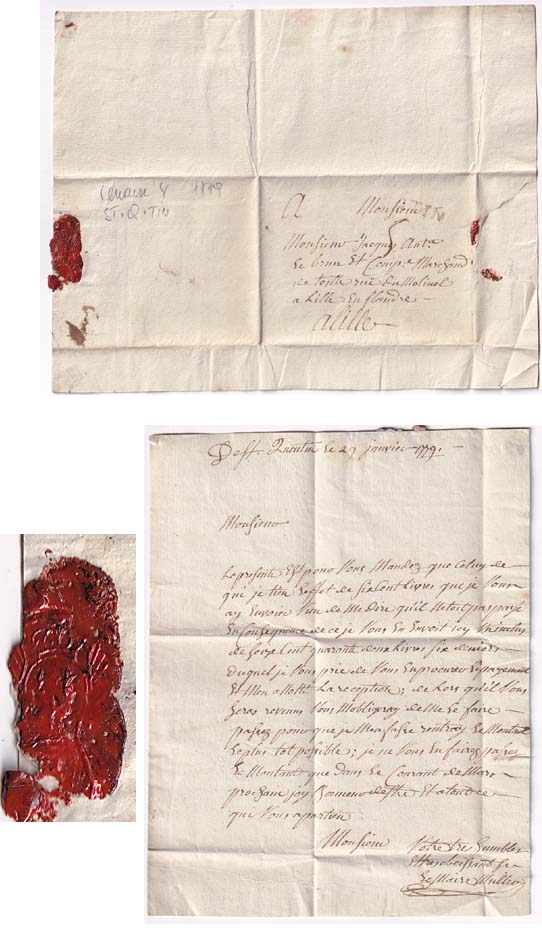 Lemaire 1779
ST. Q. TIN
A Monsieur
Monsieur Jacques Ant.e
Le brun Et Comp.e Marchand
de toille rue du Molinel
a Lille En flandre
A Lille
De St. Quentin Le 29 janvier 1779
Monsieur
La presente Est pour Vous Mandez que Celuy de
qui je tien L'effet de Six Cent Livres que je Vous
ay Envoie Vien de Me dire qu'il N'etoit pas payé
En Consequence de ce je Vous En Envoit icy
Cent quarante Livres Six deniers
duquel je Vous prie de Vous En procurer Le payement
Et Mon a Notte La reception; de Lors qu'il Vous
Seras revenus Vous M'obligeray de Me Le faire
passez pour que je M'en fasse rentrer Le Montant
Le plus tot posible; je ne Vous En fairez passez
Le Montant que dans Le Courant de Mars
prochain
que Vous apartien
Monsieur Votre Tres humble
Et tres obeissand
Le Maire Muller